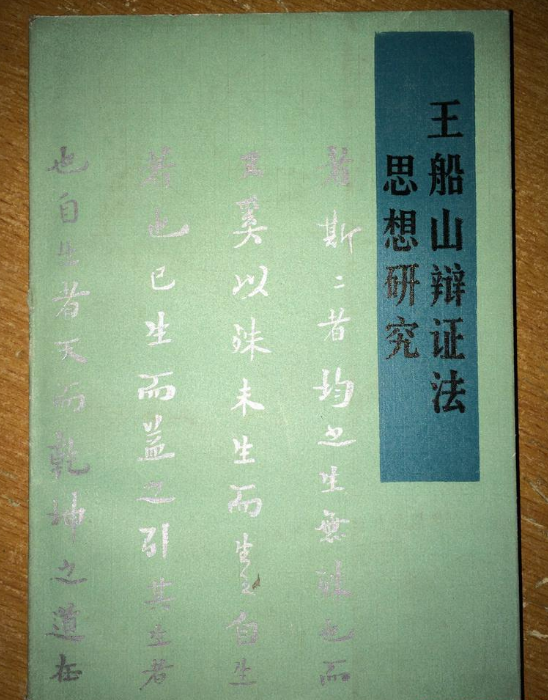 王船山辩证法
思想研究
斯二者均之生無殊也而
奚以殊未生而生之自生
也已生而益之引其生者
也自生者天而乾坤之道在